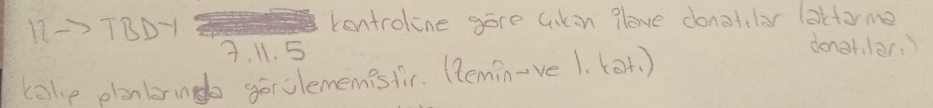 12-> TBDY kontrolüne göre çıkan ilave donatılar (aktarma
7.11.5 donatıları)
kalıp planlarında görülememiştir. (Zemin ve 1. kat.)